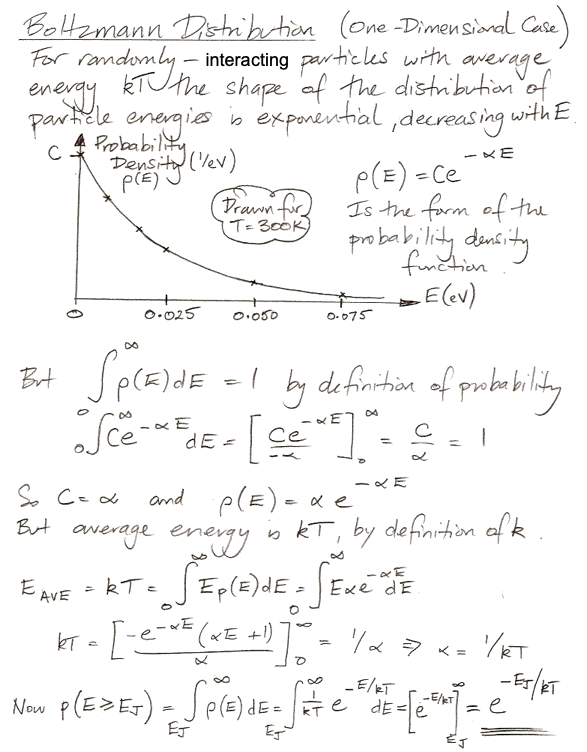 Boltzmann Distribution (One-Dimensional Case)
For randomly – interacting particles with average
energy kT the shape of the distribution of
particle energies is exponential, decreasing with E.
C
Probability
Density (1/eV)
ρ(E)
Drawn for
T = 300K
ρ(E) = Ce^-αE
Is the form of the
probability density
function.
E(eV)
0 0.025 0.050 0.075
But ∫₀^∞ ρ(E)dE = 1 by definition of probability
₀∫^∞ Ce^-αE dE = [Ce^-αE / -α]₀^∞ = C/α = 1
So C = α and ρ(E) = α e^-αE
But average energy is kT, by definition of k.
E AVE = kT = ∫₀^∞ Eρ(E)dE = ∫₀^∞ Eαe^-αE dE
kT = [-e^-αE (αE + 1) / α]₀^∞ = 1/α ⇒ α = 1/kT
Now p(E ≥ EJ) = ∫_EJ^∞ ρ(E) dE = ∫_EJ^∞ 1/kT e^-E/kT dE = [e^-E/kT]_EJ^∞ = e^-EJ/kT